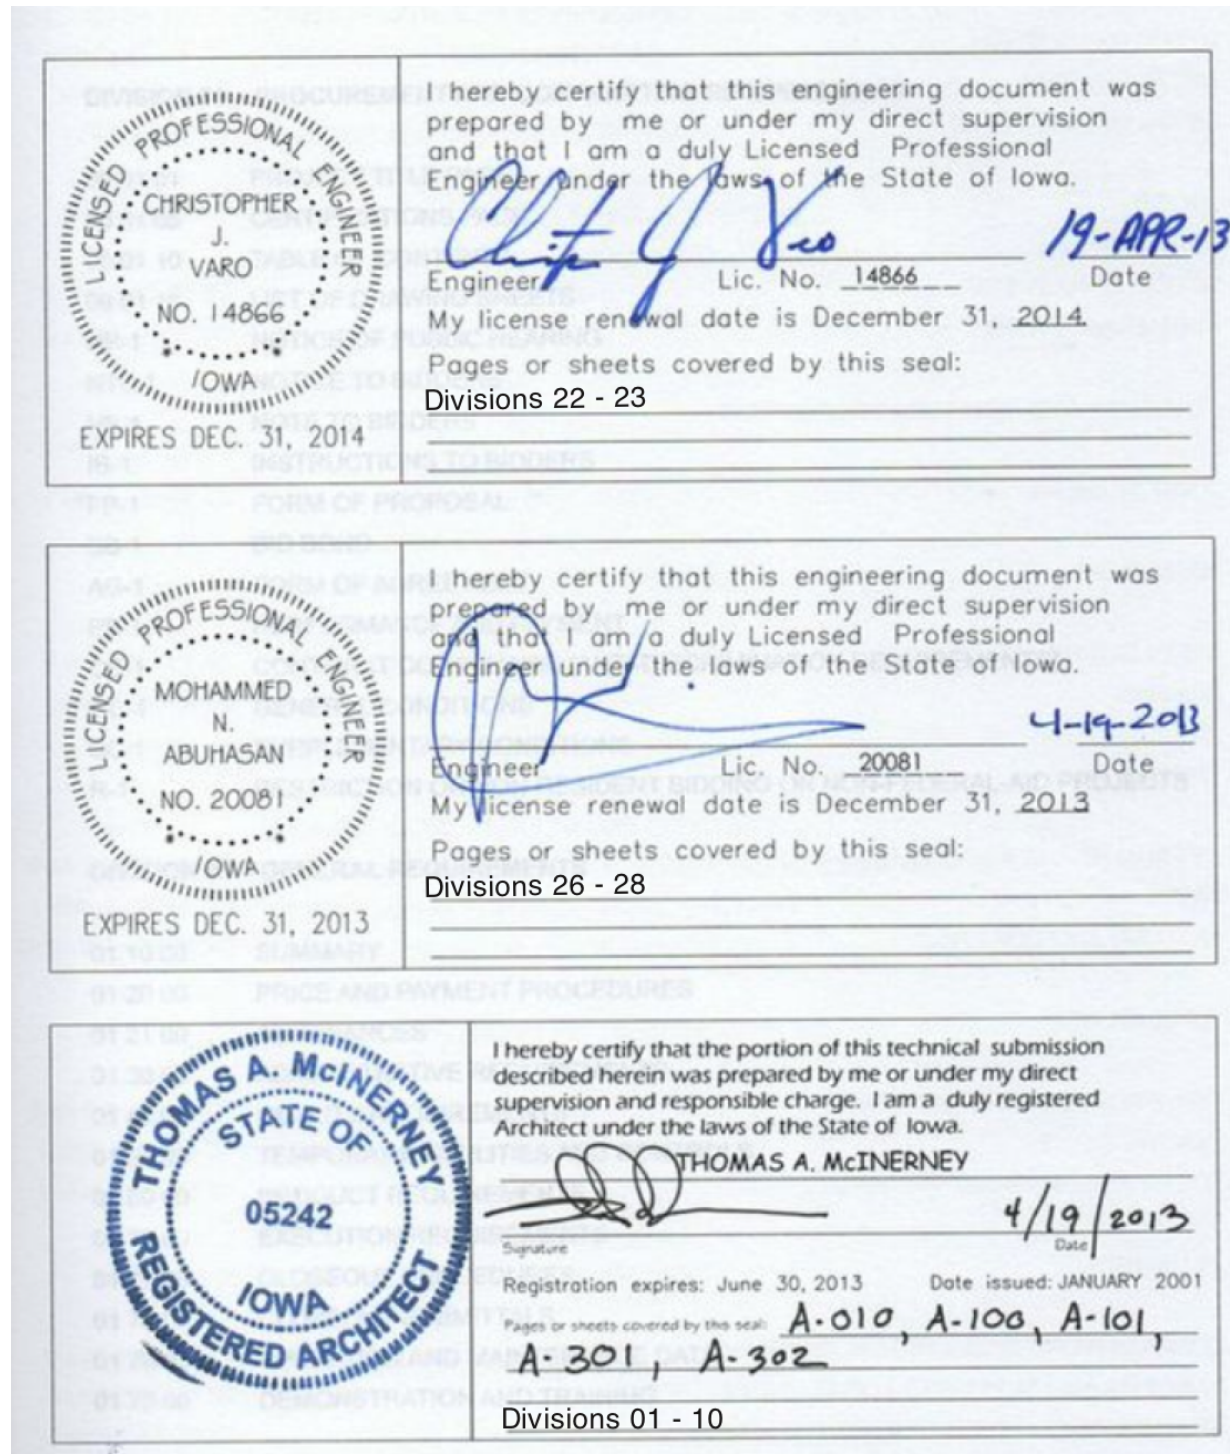 LICENSED PROFESSIONAL ENGINEER
CHRISTOPHER
J.
VARO
NO. 14866
IOWA
EXPIRES DEC. 31, 2014
I hereby certify that this engineering document was
prepared by me or under my direct supervision
and that I am a duly Licensed Professional
Engineer under the laws of the State of Iowa.
19-APR-13
Engineer Lic. No. 14866 Date
My license renewal date is December 31, 2014
Pages or sheets covered by this seal:
Divisions 22 - 23
LICENSED PROFESSIONAL ENGINEER
MOHAMMED
N.
ABUHASAN
NO. 20081
IOWA
EXPIRES DEC. 31, 2013
I hereby certify that this engineering document was
prepared by me or under my direct supervision
and that I am a duly Licensed Professional
Engineer under the laws of the State of Iowa.
4-19-2013
Engineer Lic. No. 20081 Date
My license renewal date is December 31, 2013
Pages or sheets covered by this seal:
Divisions 26 - 28
THOMAS A. McINERNEY
STATE OF
05242
IOWA
REGISTERED ARCHITECT
I hereby certify that the portion of this technical submission
described herein was prepared by me or under my direct
supervision and responsible charge. I am a duly registered
Architect under the laws of the State of Iowa.
THOMAS A. McINERNEY
4/19/2013
Signature Date
Registration expires: June 30, 2013 Date issued: JANUARY 2001
Pages or sheets covered by this seal: A-010, A-100, A-101,
A-301, A-302
Divisions 01 - 10